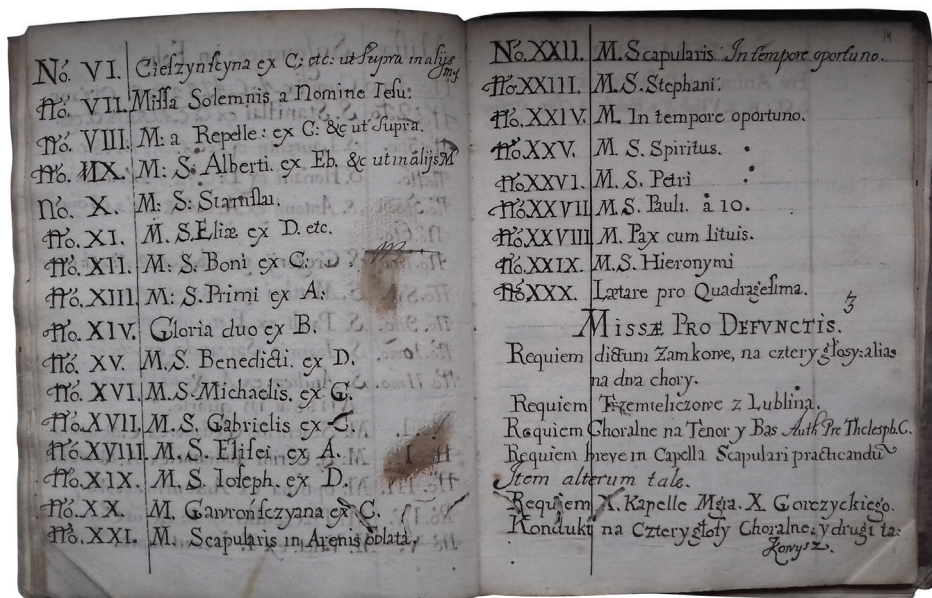 No. VI. Cieszynſcyna ex C: etc: ut Supra in alijs
No. VII. Miſſa Solemnis a Nomine Ieſu:
No. VIII. M: a Repelle: ex C: &c ut Supra.
No. IX. M: S: Alberti. ex Eb. &c ut in alijs M
No. X. M: S: Staniſlai.
No. XI. M. S. Eliæ ex D. etc.
No. XII. M: S. Boni ex C:
No. XIII. M: S. Primi ex A:
No. XIV. Gloria duo ex B.
No. XV. M. S. Benedicti. ex D.
No. XVI. M. S. Michaelis. ex G.
No. XVII. M. S. Gabrielis ex C.
No. XVIII. M. S. Eliſei ex A.
No. XIX. M. S. Ioſeph. ex D.
No. XX. M. Gawrońſczyana ex C.
No. XXI. M. Scapularis in Arenis oblata.
19
No. XXII. M. Scapularis. In tempore oportuno.
No. XXIII. M. S. Stephani.
No. XXIV. M. In tempore oportuno.
No. XXV. M. S. Spiritus.
No. XXVI. M. S. Petri
No. XXVII M. S. Pauli. à 10.
No. XXVIII M. Pax cum lituis.
No. XXIX. M. S. Hieronymi
No. XXX. Lætare pro Quadrageſima.
3
MISSÆ PRO DEFVNCTIS.
Requiem dictum Zamkowe, na cztery głosy: alias
na dwa chory.
Requiem Trzemieliczowe z Lublina.
Requiem Choralne na Tenor y Bas Auth Pre Theleſph. C.
Requiem breve in Capella Scapulari practicandu
Item alterum tale.
Requiem X. Kapelle Mgra. X. Gorczyckiego.
Kondukt na Cztery głoſy Choralne: y drugi ta: